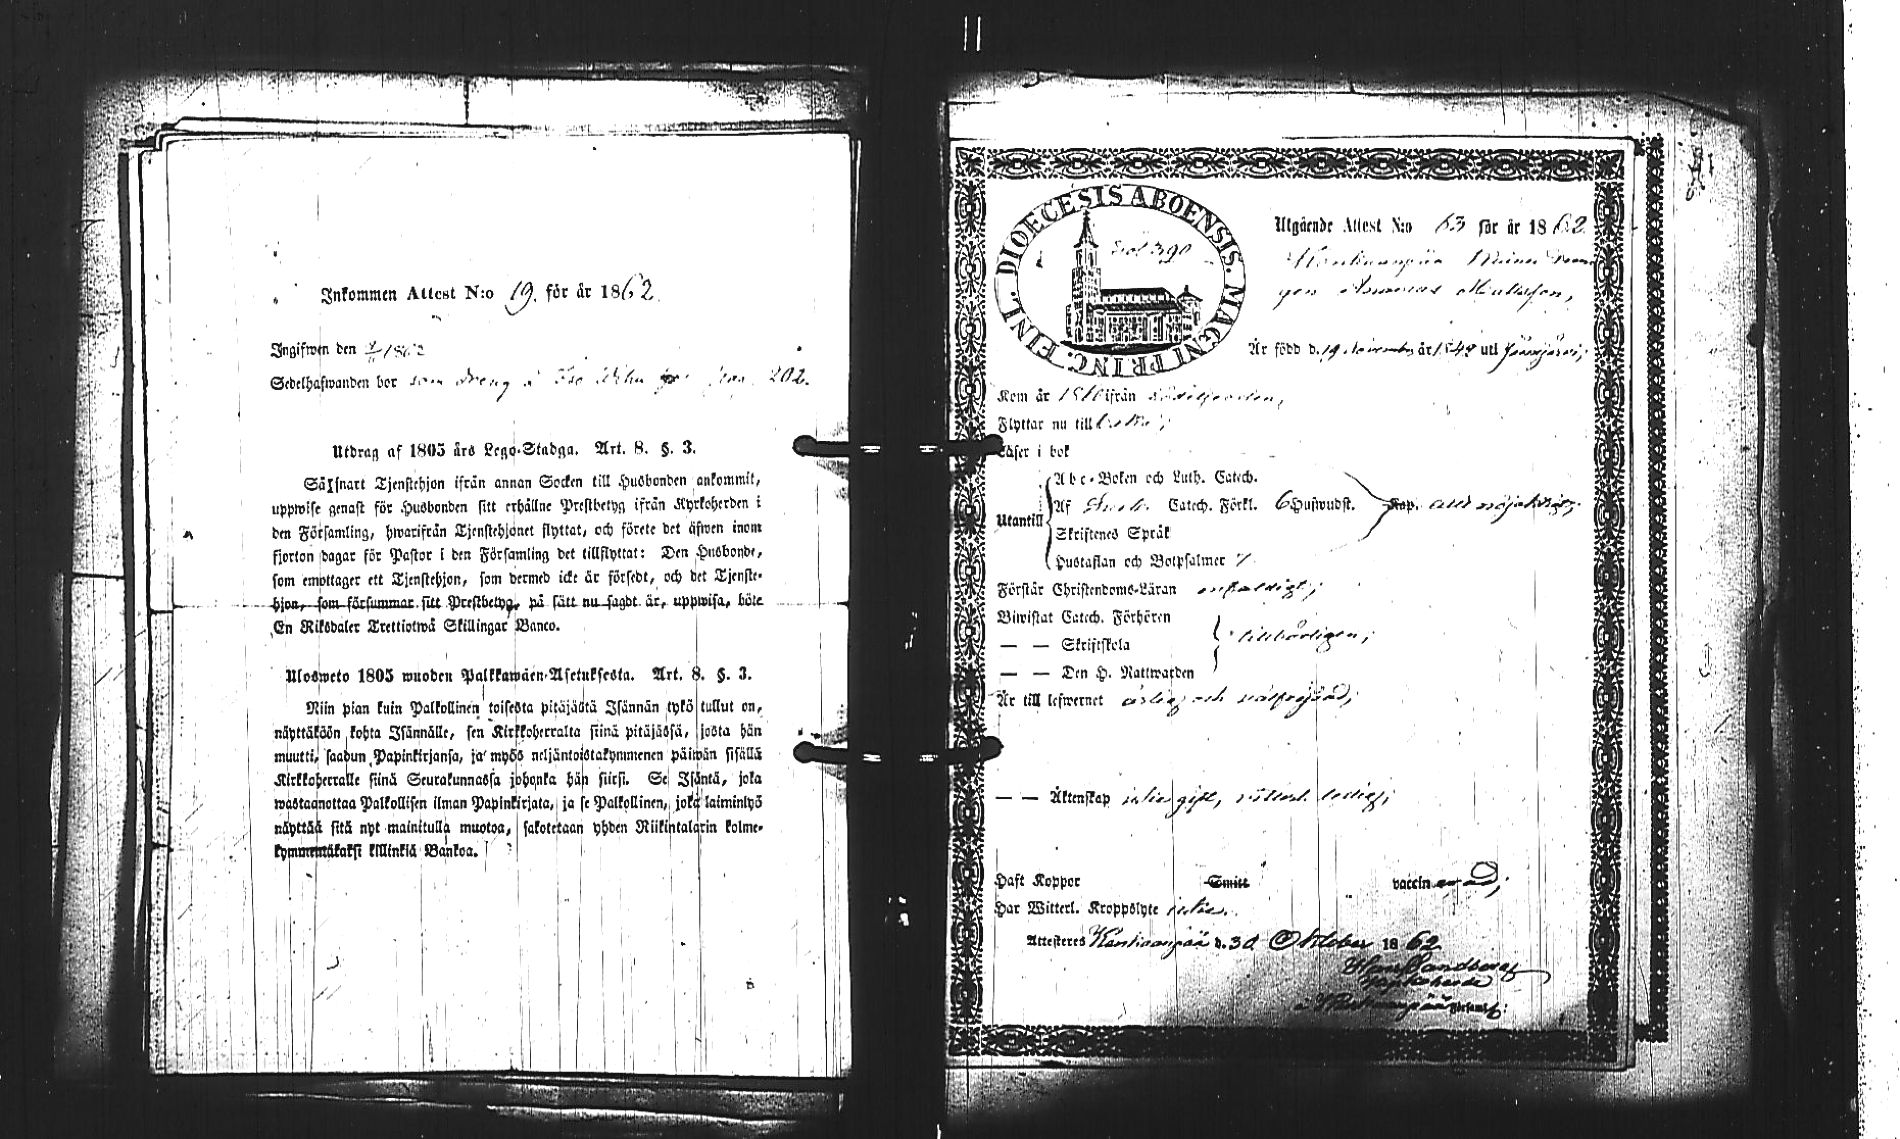 Inkommen Attest N:o 19. för år 1862.
Ingifwen den 1862
Sedelhafwanden bor som dreng å 202.
Utdrag af 1805 års Lego-Stadga. Art. 8. §. 3.
Såsnart Tjenstehjon ifrån annan Socken till Husbonden ankommit,
uppwise genast för Husbonden sitt erhållne Prestbetyg ifrån Kyrkoherden i
den Församling, hwarifrån Tjenstehjonet flyttat, och förete det äfwen inom
fjorton dagar för Pastor i den Församling det tillflyttat: Den Husbonde,
som emottager ett Tjenstehjon, som dermed icke är försedt, och det Tjenste-
hjon, som försummar sitt Prestbetyg, på sätt nu sagdt är, uppwisa, böte
En Riksdaler Trettiotwå Skillingar Banco.
Ulosweto 1805 wuoden Palkkawäen-Asetuksesta. Art. 8. §. 3.
Niin pian kuin Palkollinen toisesta pitäjästä Isännän tykö tullut on,
näyttäköön kohta Isännälle, sen Kirkkoherralta siinä pitäjässä, josta hän
muutti, saadun Papinkirjansa, ja myös neljäntoistakymmenen päiwän sisällä
Kirkkoherralle siinä Seurakunnassa johonka hän siirsi. Se Isäntä, joka
wastaanottaa Palkollisen ilman Papinkirjata, ja se Palkollinen, joka laiminlyö
näyttää sitä nyt mainitulla muotoa, sakotetaan yhden Riikintalarin kolme-
kymmentäkaksi killinkiä Bankoa.
DIOECESIS ABOENSIS. MAGNI PRINC. FINL.
fol 390
Utgående Attest N:o 63 för år 1862.
Kankaanpää
Mattsson,
Är född d. 19 November år 1848 uti Jämijärvi,
Kom år ifrån
Flyttar nu till
Läser i bok
Abc-Boken och Luth. Catech.
Utantill
Af Catech. Förkl. 6 Hufwudst. Kap.
Skriftenes Språk
Hustaflan och Botpsalmer
Förstår Christendoms-Läran enfaldigt;
Biwistat Catech. Förhören
— — Skriftskola tillbörligen;
— — Den H. Nattwarden
Är till lefwernet ärlig och wälfrejdad;
— — Äktenskap icke gift, ledig;
Haft Koppor Smitt vaccinerad;
Har Witterl. Kroppslyte icke.
Attesteres Kankaanpää d. 30 Oktober 1862
Sandberg
Kankaanpää